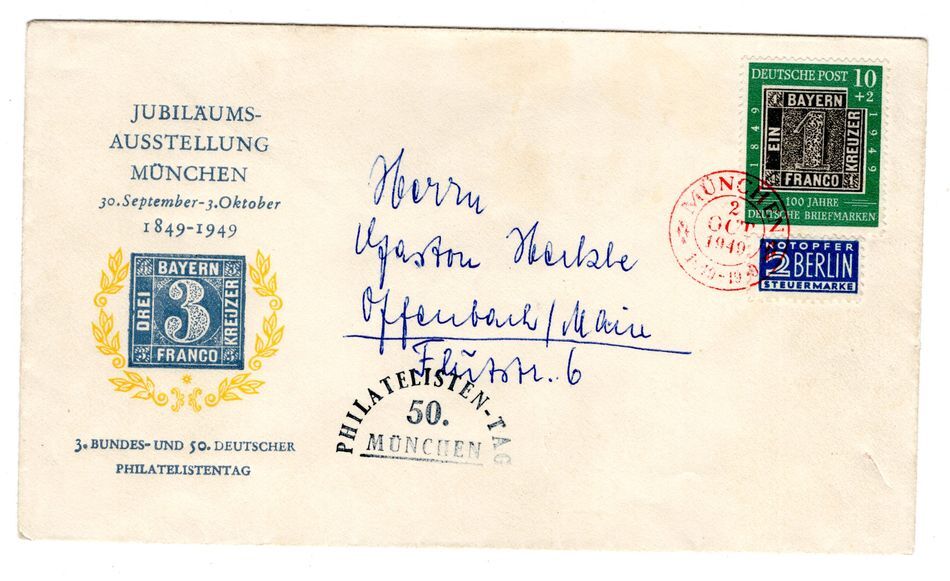 JUBILÄUMS-
AUSSTELLUNG
MÜNCHEN
30. September-3. Oktober
1849-1949
BAYERN
DREI
3
KREUZER
FRANCO
3. BUNDES- UND 50. DEUTSCHER
PHILATELISTENTAG
Herrn
Gaston
Offenbach/Main
6
PHILATELISTEN-TAG
50.
MÜNCHEN
DEUTSCHE POST 10
+2
1849
1949
BAYERN
EIN
1
KREUZER
FRANCO
100 JAHRE
DEUTSCHE BRIEFMARKEN
MÜNCHEN
2
OCT
1949
NOTOPFER
2 BERLIN
STEUERMARKE